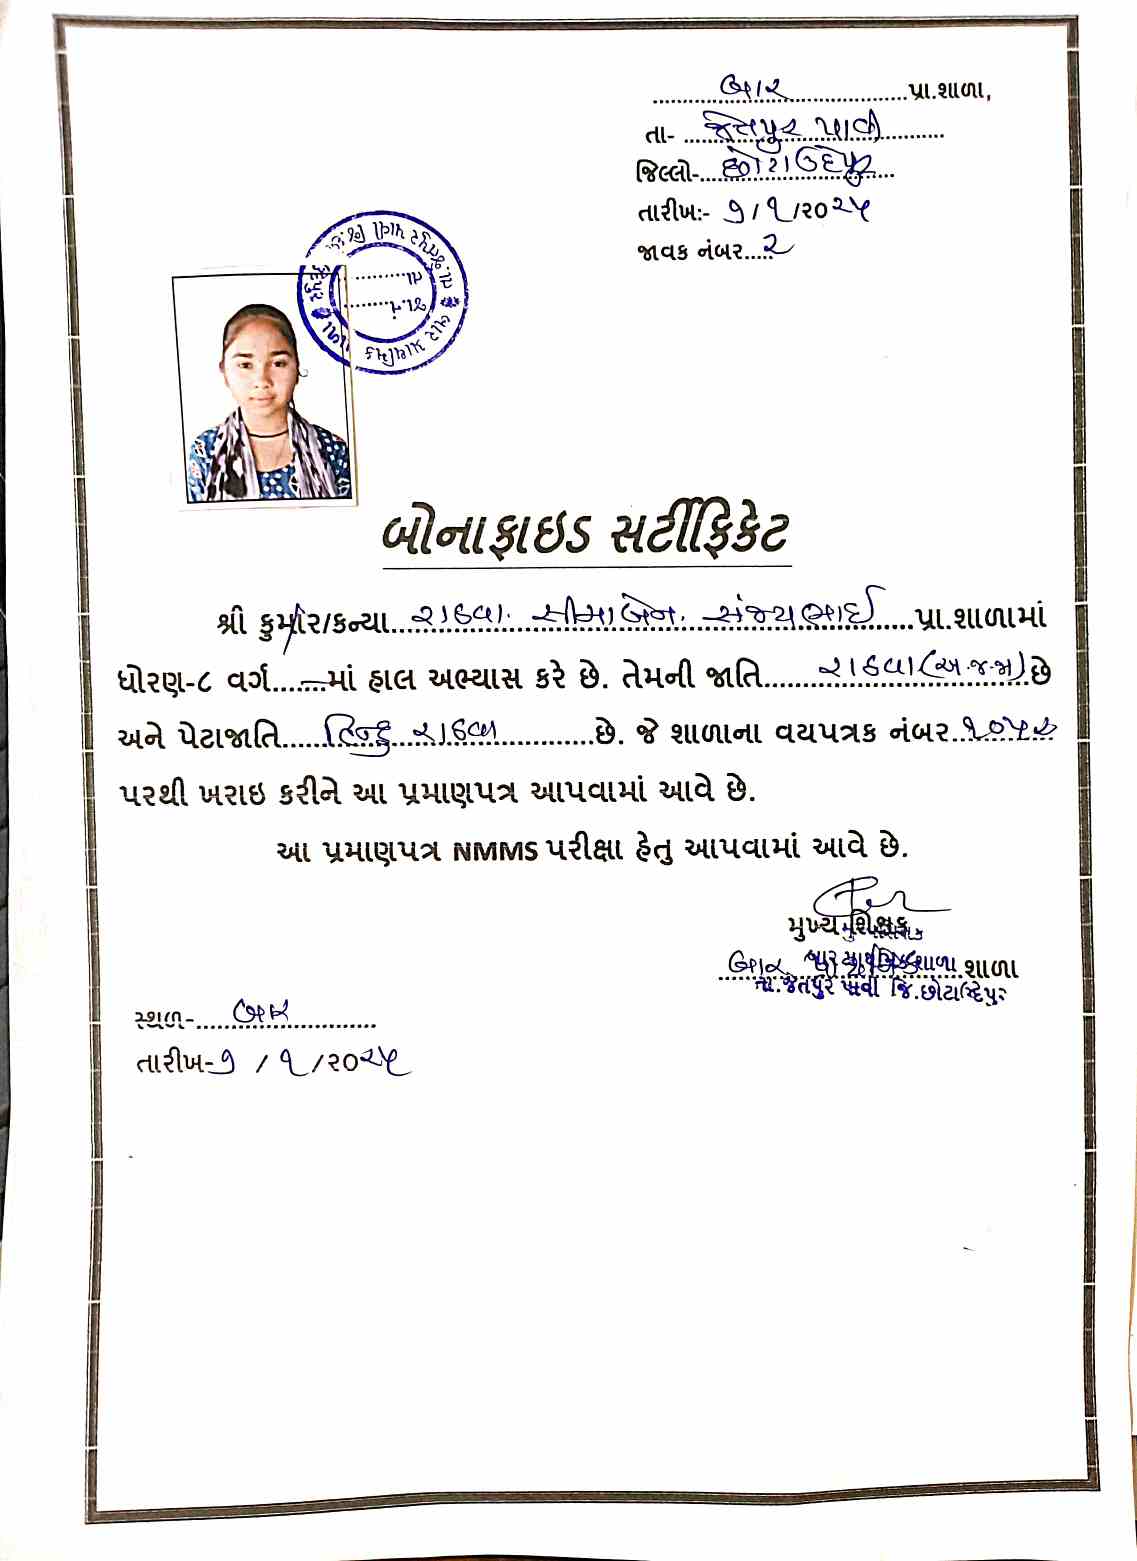 બાર પ્રા.શાળા,
તા- જેતપુર પાવી
જિલ્લો- છોટાઉદેપુર
તારીખ:- ૭/૧/૨૦૨૫
જાવક નંબર.....૨
બાર પ્રાથમિક શાળા તા.જેતપુર પાવી જી.છોટાઉદેપુર
જા.નં..........
તા..........
બોનાફાઇડ સર્ટીફિકેટ
શ્રી કુમાર/કન્યા રાઠવા સીમાબેન સંજયભાઈ પ્રા.શાળામાં
ધોરણ-૮ વર્ગ.......—માં હાલ અભ્યાસ કરે છે. તેમની જાતિ રાઠવા(અ.જ.જા) છે
અને પેટાજાતિ હિન્દુ રાઠવા છે. જે શાળાના વયપત્રક નંબર
પરથી ખરાઇ કરીને આ પ્રમાણપત્ર આપવામાં આવે છે.
આ પ્રમાણપત્ર NMMS પરીક્ષા હેતુ આપવામાં આવે છે.
મુખ્ય શિક્ષક
બાર પ્રાથમિક શાળા
બાર પ્રાથમિક શાળા
તા.જેતપુર પાવી જિ.છોટાઉદેપુર
સ્થળ- બાર
તારીખ-૭ / ૧ /૨૦૨૫